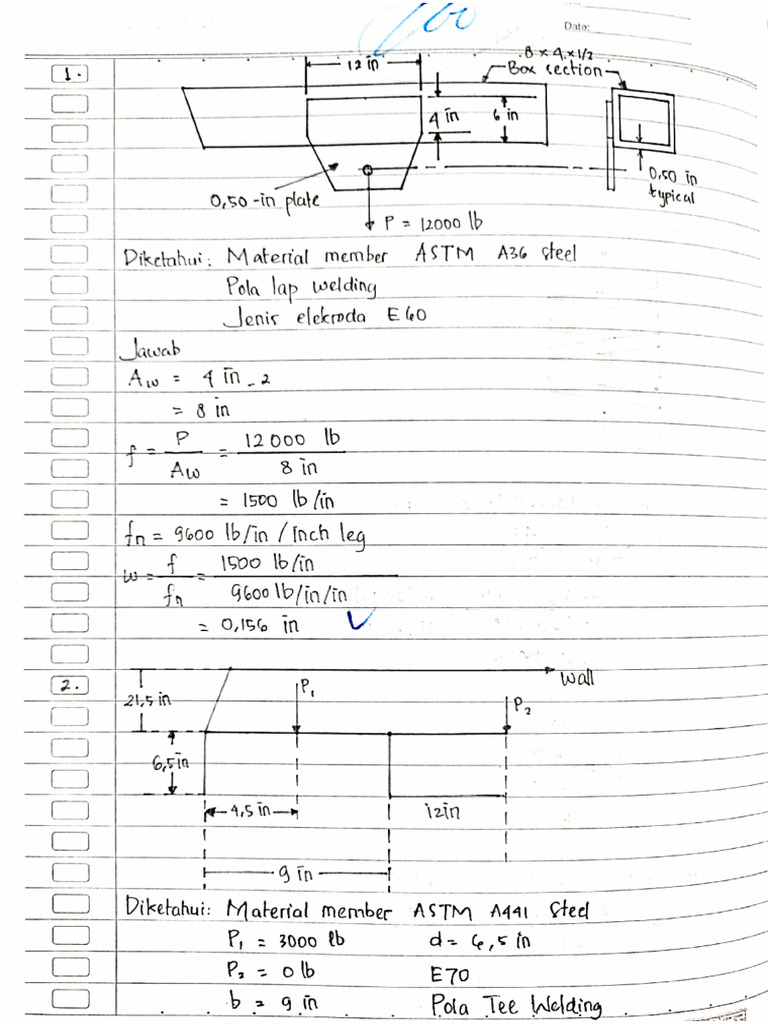 100
Date:
1.
12 in
8 x 4 x 1/2
Box section
4 in
6 in
0,50 in
typical
0,50-in plate
P = 12000 lb
Diketahui: Material member ASTM A36 steel
Pola lap welding
Jenis elekroda E60
Jawab
Aw = 4 in . 2
= 8 in
f = P/Aw = 12000 lb/8 in
= 1500 lb/in
fn = 9600 lb/in/inch leg
w = f/fn = 1500 lb/in/9600 lb/in/in
= 0,156 in ✓
2.
Wall
21,5 in
P1
P2
6,5 in
4,5 in
12in
9 in
Diketahui: Material member ASTM A441 Steel
P1 = 3000 lb d = 6,5 in
P2 = 0 lb E70
b = 9 in Pola Tee Welding